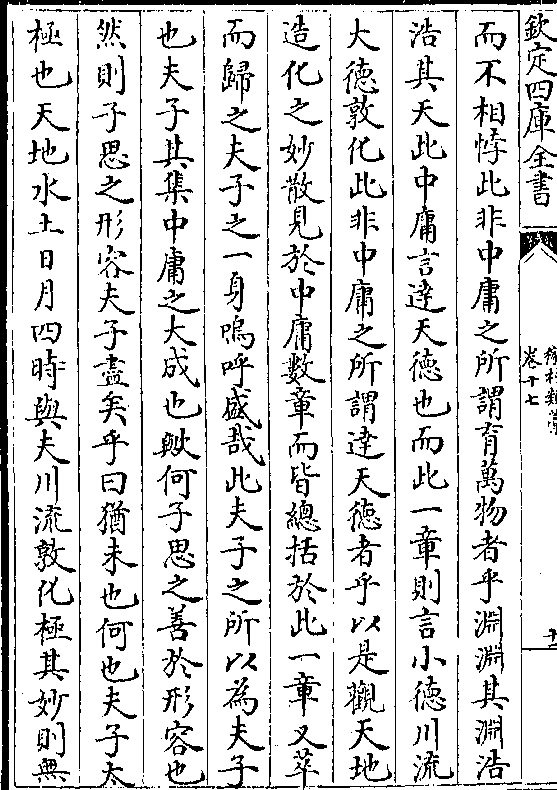 欽定四庫全書
卷十七
而不相悖此非中庸之所謂育萬物者乎淵淵其淵浩
浩其天此中庸言達天德也而此一章則言小德川流
大德敦化此非中庸之所謂達天德者乎以是觀天地
造化之妙散見於中庸數章而皆總括於此一章又萃
而歸之夫子之一身嗚呼盛哉此夫子之所以為夫子
也夫子其集中庸之大成也歟何子思之善於形容也
然則子思之形容夫子盡矣乎曰猶未也何也夫子太
極也天地水土日月四時與夫川流敦化極其妙則無